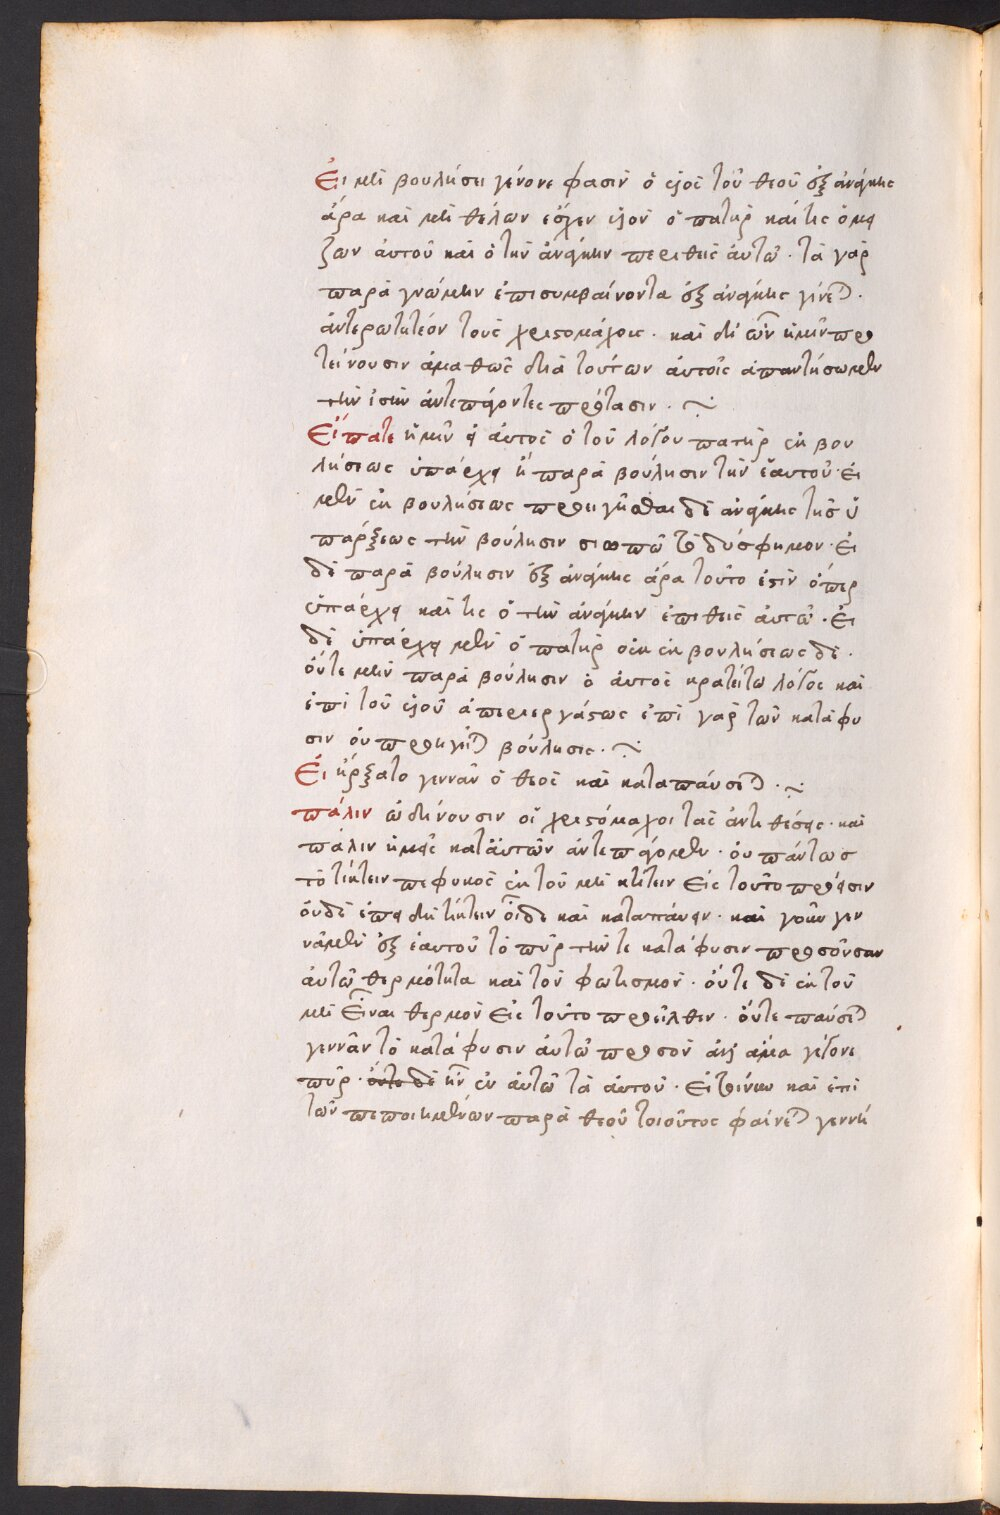 Εἰ μὴ βουλήσει γέγονε φασὶν ὁ υἱὸς τοῦ θεοῦ ἐξ ἀνάγκης
ἄρα καὶ μὴ θέλων ἔσχεν υἱὸν ὁ πατὴρ καί τις ὁ μεί
ζων αὐτοῦ καὶ ὁ τὴν ἀνάγκην περιθεὶς αὐτῷ· τὰ γὰρ
παρὰ γνώμην ἐπισυμβαίνοντα ἐξ ἀνάγκης γίνεται·
ἀντερωτητέον τοὺς χριστομάχους· καὶ δι' ὧν ἡμῖν προ
τείνουσιν ἀμαθῶς διὰ τούτων αὐτοῖς ἀπαντήσωμεν
τὴν ἴσην ἀντεπάγοντες πρότασιν·
Εἴπατε ἡμῖν εἰ αὐτὸς ὁ τοῦ λόγου πατὴρ ἐκ βου
λήσεως ὑπάρχει ἢ παρὰ βούλησιν τὴν ἑαυτοῦ· εἰ
μὲν ἐκ βουλήσεως προηγεῖσθαι δὲ ἀνάγκης τῆς ὑ
πάρξεως τὴν βούλησιν σιωπῶ τὸ δύσφημον· εἰ
δὲ παρὰ βούλησιν ἐξ ἀνάγκης ἄρα τοῦτο ἐστὶν ὅπερ
ὑπάρχει καὶ τις ὁ τὴν ἀνάγκην ἐπιθεὶς αὐτῷ· εἰ
δὲ ὑπάρχει μὲν ὁ πατὴρ οὐκ ἐκ βουλήσεως δὲ·
οὔτε μὴν παρὰ βούλησιν ὁ αὐτὸς κρατείτω λόγος καὶ
ἐπὶ τοῦ υἱοῦ ἀπεριεργάστως ἐπὶ γὰρ τῶν κατὰ φύ
σιν οὐ προηγεῖται βούλησις·
Εἰ ἤρξατο γεννᾶν ὁ θεὸς καὶ καταπαύσεται·
πάλιν ὠδίνουσιν οἱ χριστομάχοι τὰς ἀντιθέσεις· καὶ
πάλιν ἡμεῖς κατ' αὐτῶν ἀντεπάγομεν· οὐ πάντως
τὸ τίκτειν πεφυκὸς ἐκ τοῦ μὴ τίκτειν εἰς τοῦτο πρόεισιν
οὐδὲ ἐπεὶ δὴ τίκτειν οἶδε καὶ καταπαύειν· καὶ γοῦν γεν
νᾶ μὲν ἐξ ἑαυτοῦ τὸ πῦρ τήν τε κατὰ φύσιν προσοῦσαν
αὐτῷ θερμότητα καὶ τὸν φωτισμὸν· οὔτε δὲ ἐκ τοῦ
μὴ εἶναι θερμὸν εἰς τοῦτο προῆλθεν· οὔτε παύσεται
γεννᾶν τὸ κατὰ φύσιν αὐτῷ προσὸν ἀλλ' ἅμα γέγονε
πῦρ· οὔτε δὲ ἦν ἐν αὐτῷ τὰ αὐτοῦ· εἰ τοίνυν καὶ ἐπὶ
τῶν πεποιημένων παρὰ θεοῦ τοιοῦτος φαίνεται γεννή